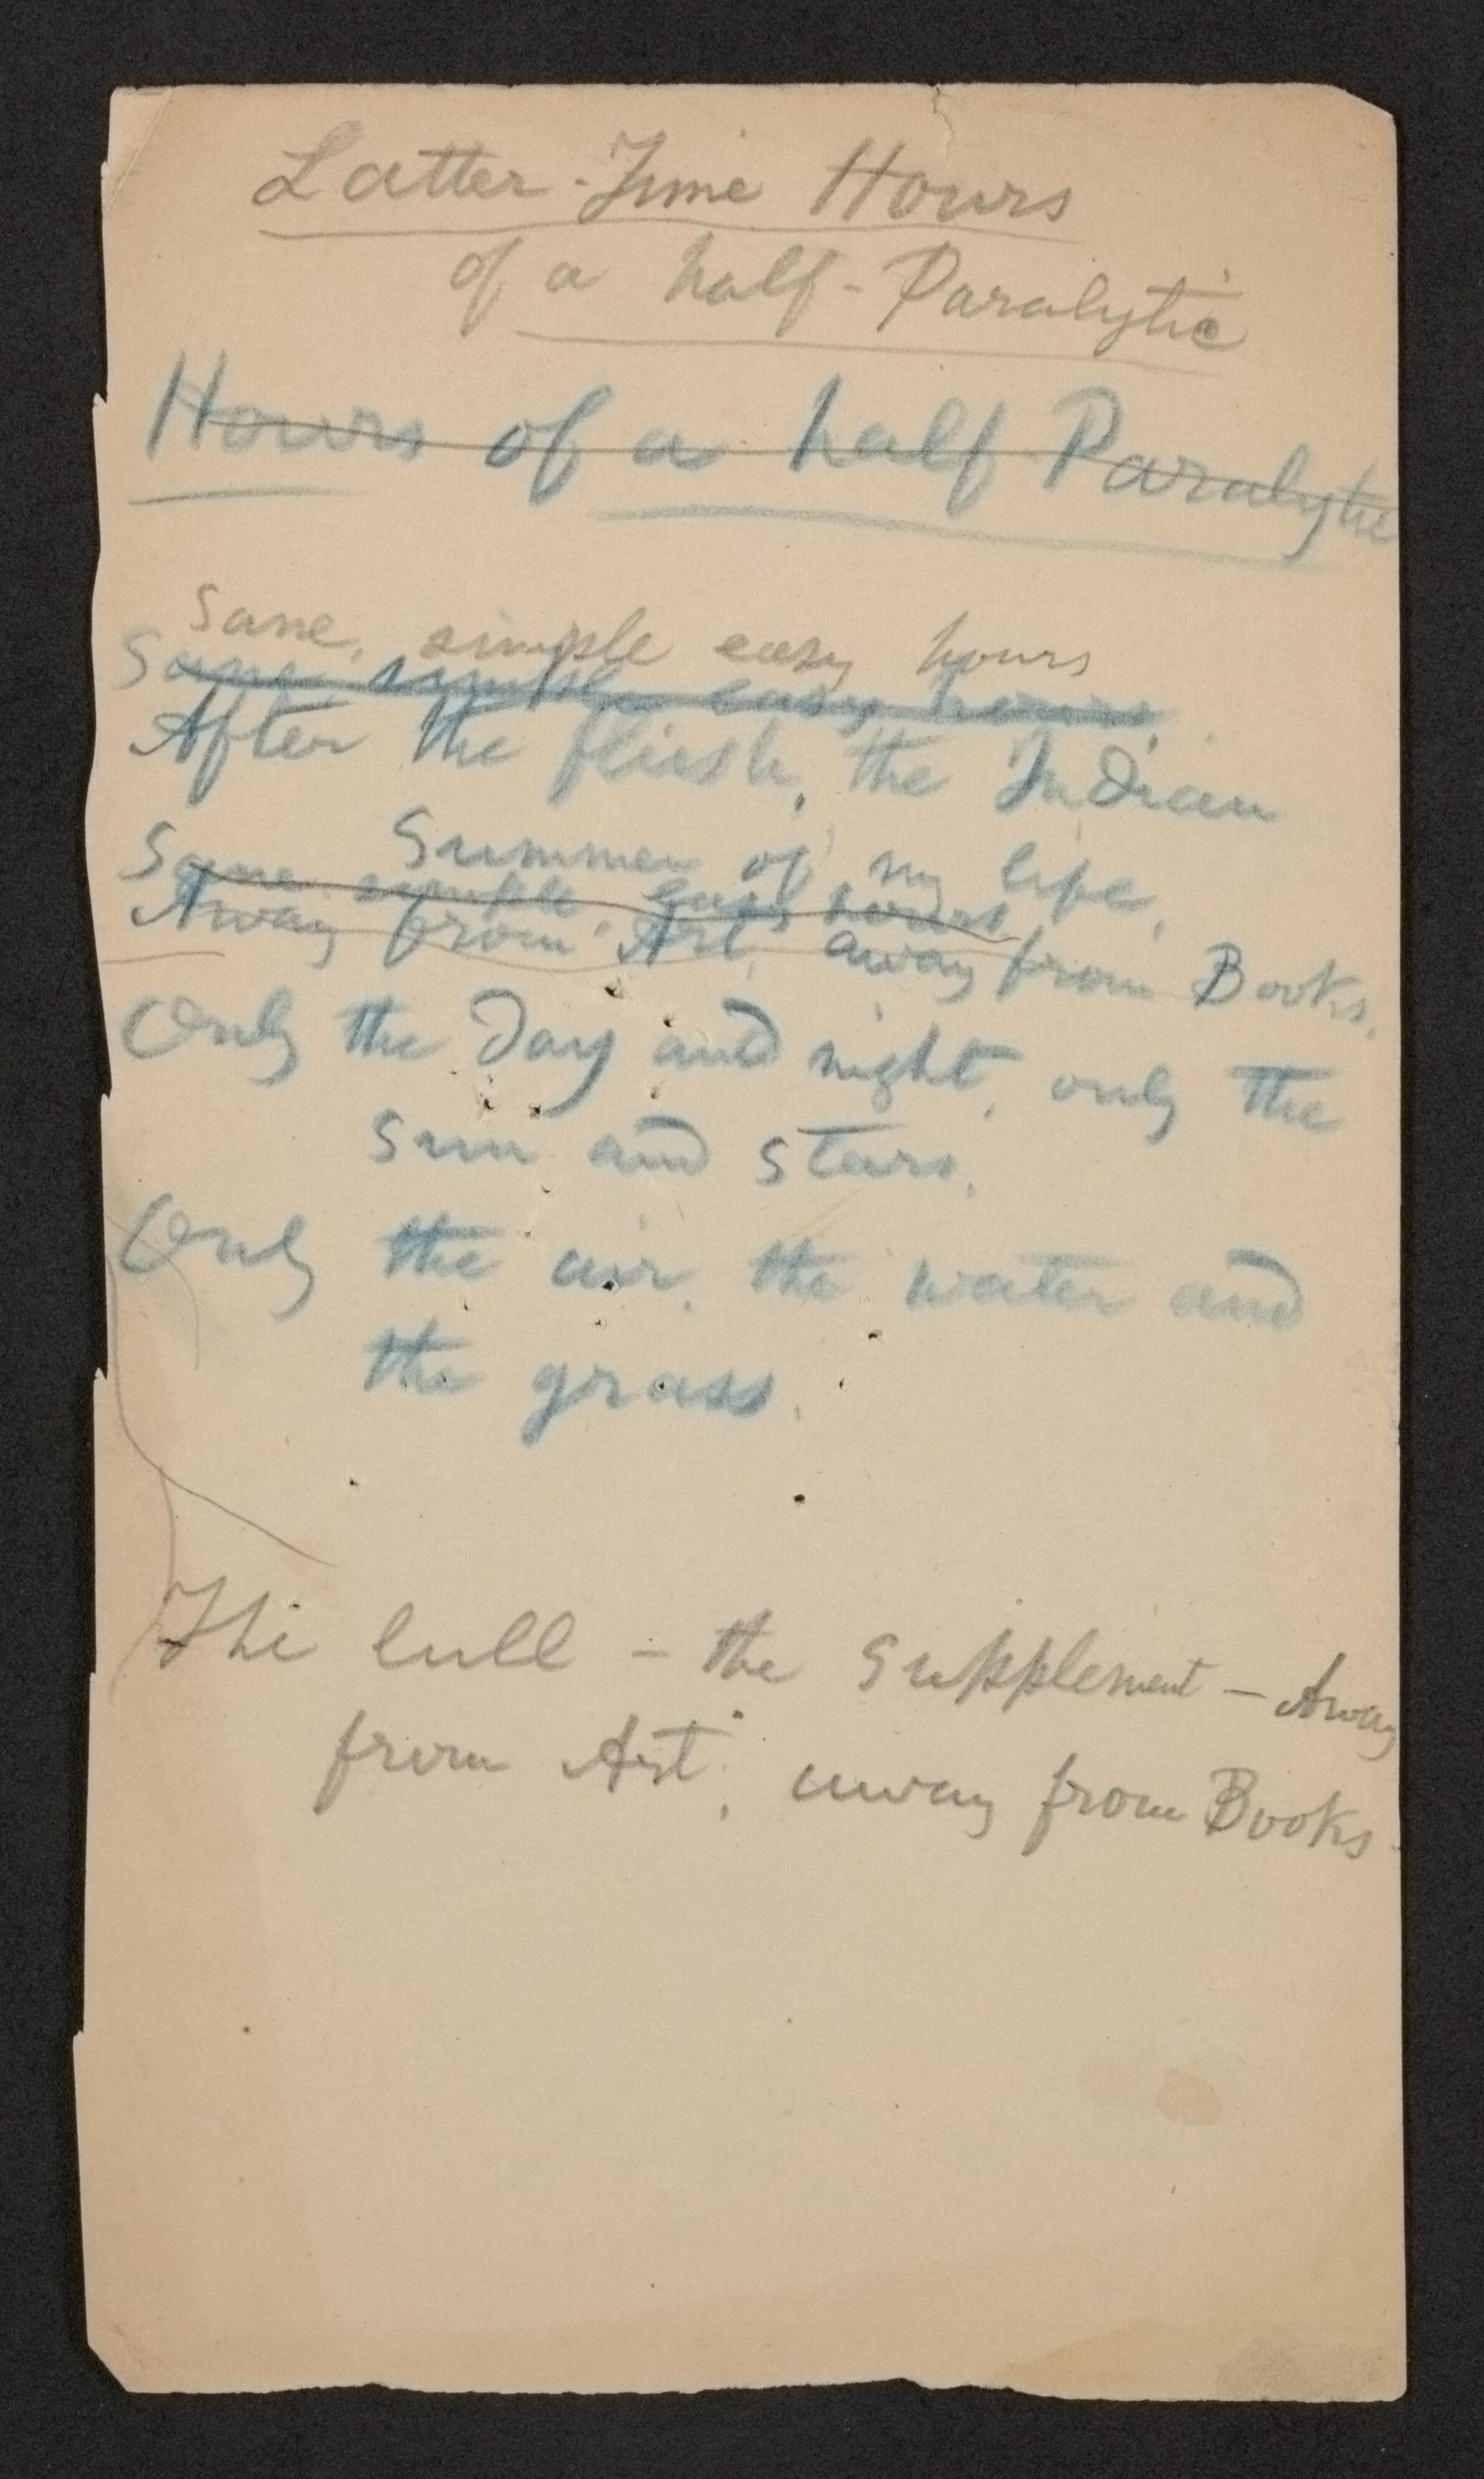 Latter-Time Hours
of a half-Paralytic
Hours of a half Paralytic
Sane, simple easy hours
Sane, simple easy hours,
After the flush, the Indian
Summer of my life,
Sane simple, easy hours
Away from Art, away from Books,
Only the Day and night, only the
sun and stars,
Only the air, the water and
the grass,
The lull – the supplement – Away
from Art, away from Books